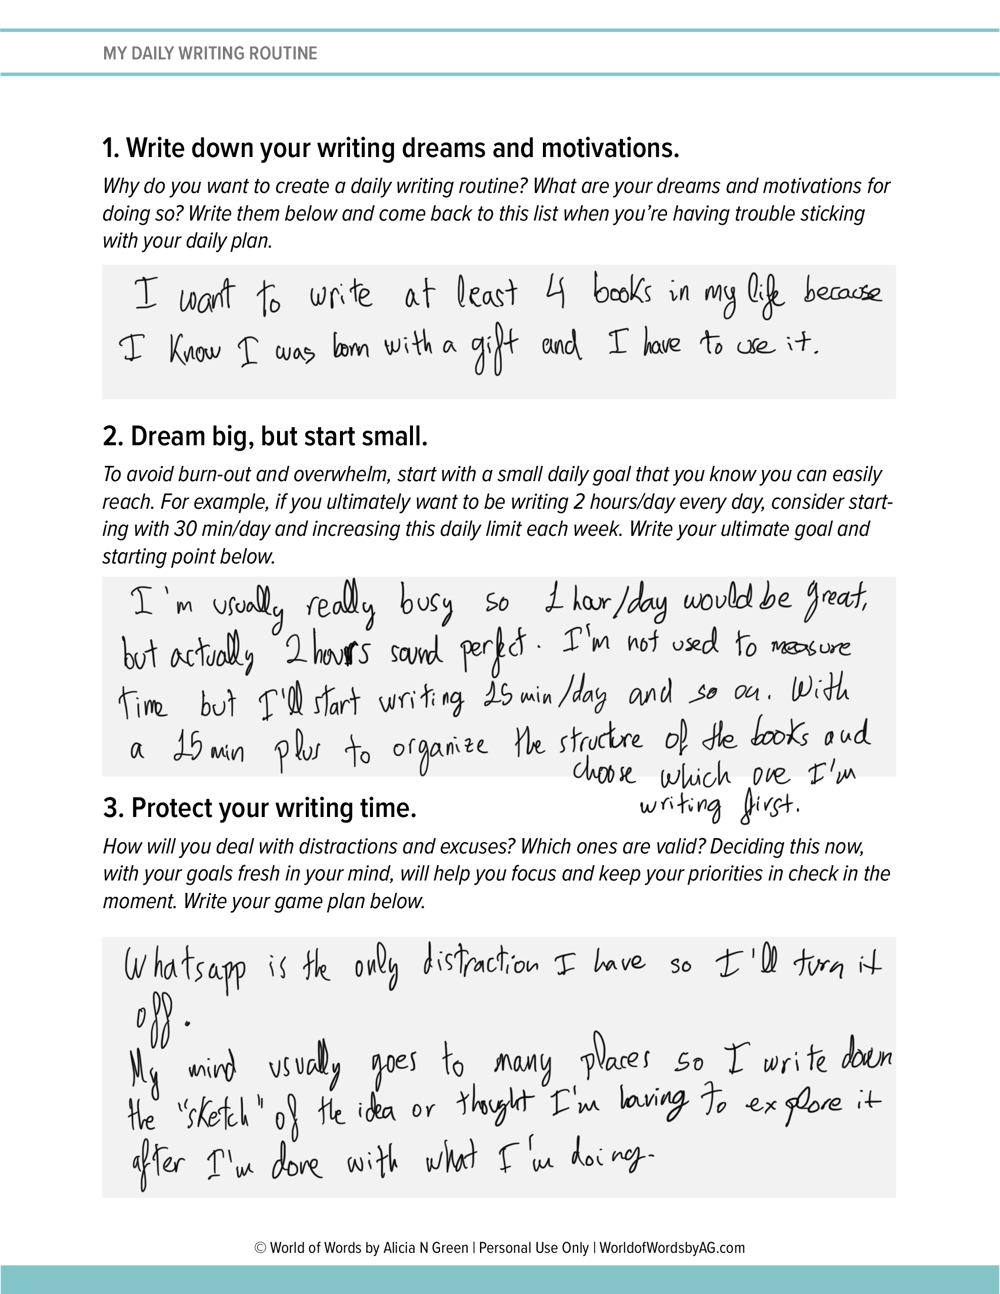 MY DAILY WRITING ROUTINE
1. Write down your writing dreams and motivations.
Why do you want to create a daily writing routine? What are your dreams and motivations for
doing so? Write them below and come back to this list when you're having trouble sticking
with your daily plan.
I want to write at least 4 books in my life because
I know I was born with a gift and I have to use it.
2. Dream big, but start small.
To avoid burn-out and overwhelm, start with a small daily goal that you know you can easily
reach. For example, if you ultimately want to be writing 2 hours/day every day, consider start-
ing with 30 min/day and increasing this daily limit each week. Write your ultimate goal and
starting point below.
I'm usually really busy so 1 hour/day would be great,
but actually 2 hours sound perfect. I'm not used to measure
time but I'll start writing 15 min/day and so on. With
a 15 min plus to organize the structure of the books and
choose which one I'm
writing first.
3. Protect your writing time.
How will you deal with distractions and excuses? Which ones are valid? Deciding this now,
with your goals fresh in your mind, will help you focus and keep your priorities in check in the
moment. Write your game plan below.
Whatsapp is the only distraction I have so I'll turn it
off.
My mind usually goes to many places so I write down
the "sketch" of the idea or thought I'm having to explore it
after I'm done with what I'm doing.
© World of Words by Alicia N Green | Personal Use Only | WorldofWordsbyAG.com